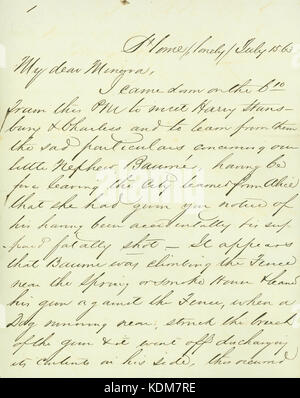 Home (lonely) July 15 6
My dear Minora,
I came down on the 6 00
train this PM to meet Harry Stans-
bury & Charless and to learn from them
the sad particulars concerning our
little Nephew Baume, having be
fore leaving the City learned from Alice
that she had given you notice of
his having been accidentally his sup
posed fatally shot — It appears
that Baume was climbing the Fence
near the Spring or smoke House & leaned
his gun against the Fence, when a
Dog running near, struck the breech
of the gun & it went off discharging
its contents in his side, this occurred
alamy
Image ID: KDM7RE
www.alamy.com